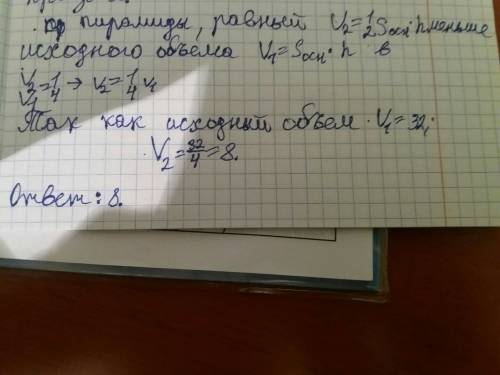 пирамиды, равный V₂=½Sосн·h меньше
исходного объема V₁=Sосн·h в
V₂/V₁=1/4 → V₂=1/4 V₁
Так как исходный объем V₁=32,
V₂=32/4=8.
Ответ: 8.